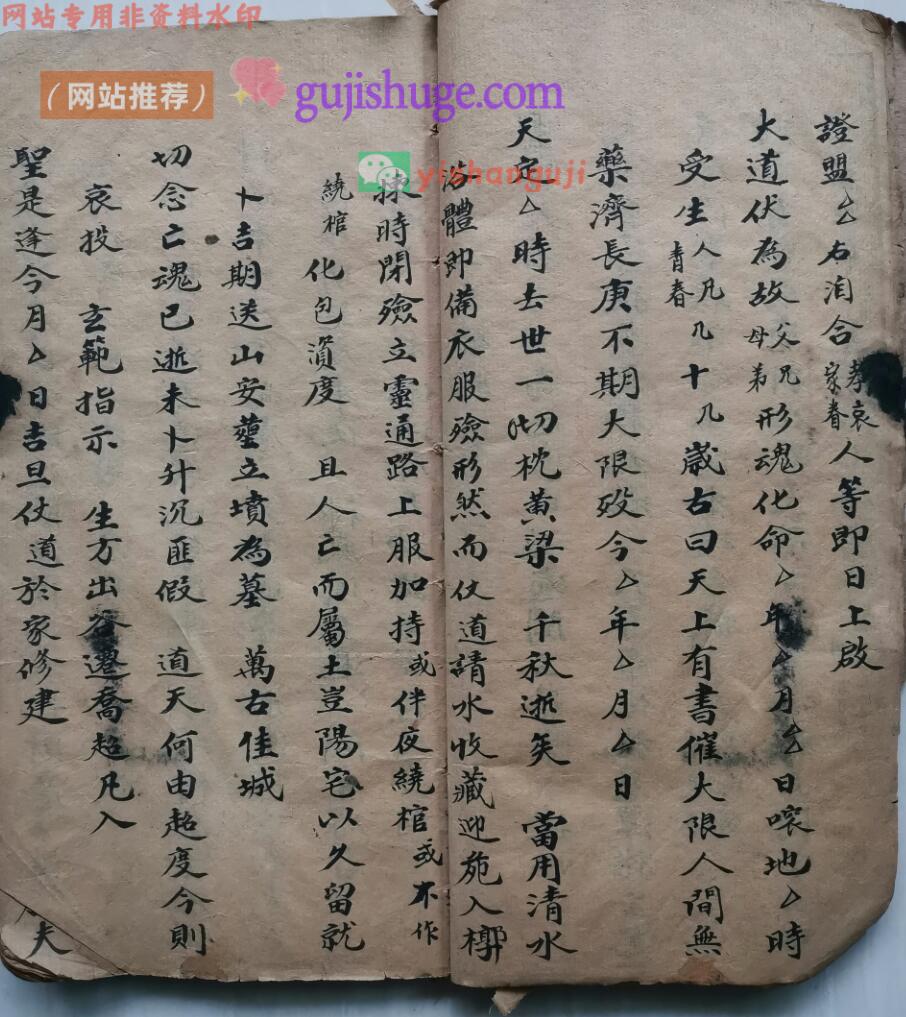 网站专用非资料水印
（网站推荐）
gujishuge.com
yishanguji
證盟厶厶右洎合孝哀家眷人等即日上啟
大道伏為故父母兄弟形魂化命厶年厶月厶日喂地厶時
受生人凡青春几十几歲古曰天上有書催大限人間無
藥濟長庚不期大限殁今厶年厶月厶日
天定厶時去世一切枕黄梁 千秋逝矣 當用清水
浴體即備衣服殮形然而仗道請水收藏迎苑入槨
揀時閉殮立靈通路上服加持或伴夜繞棺或不作
繞棺 化包資度 且人亡而屬土豈陽宅以久留就
卜吉期送山安葬立墳為墓 萬古佳城
切念亡魂已逝未卜升沉匪假 道天何由超度今則
哀投 玄範指示 生方出谷遷喬超凡入
聖是逢今月厶日吉旦仗道於家修建
夫